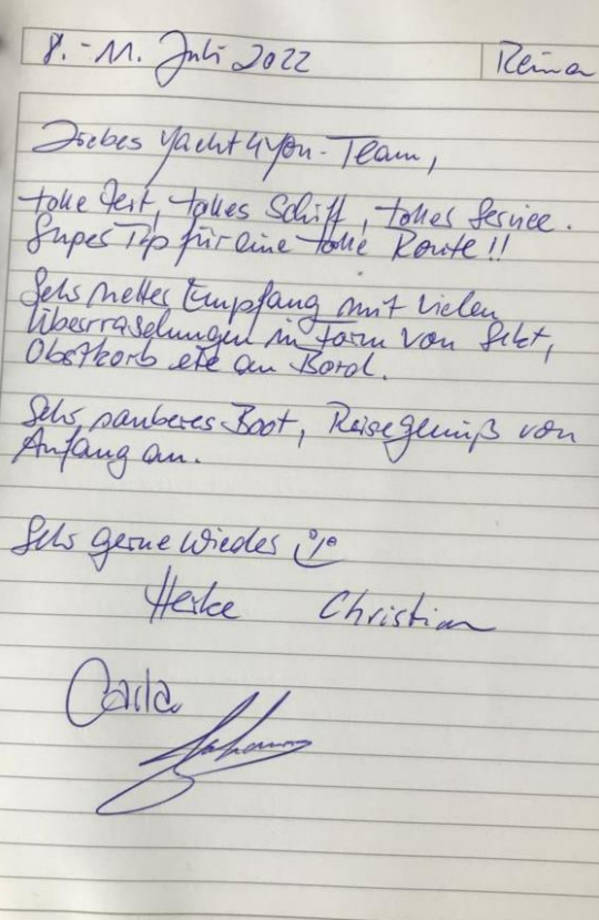 8.-11. Juli 2022
Liebes Yacht4You-Team,
tolle Zeit, tolles Schiff, toller Service.
Super Tip für eine tolle Route!!
Sehr netter Empfang mit vielen
Überraschungen in Form von Sekt,
Obstkorb etc an Bord.
Sehr sauberes Boot, Reisegenuß von
Anfang an.
Sehr gerne wieder
Heike Christian
Carla